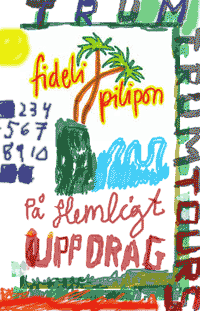 TRUM
TRUMTOURS
fideli
pilipon
1234
567
8910
På Hemligt
UPPDRAG